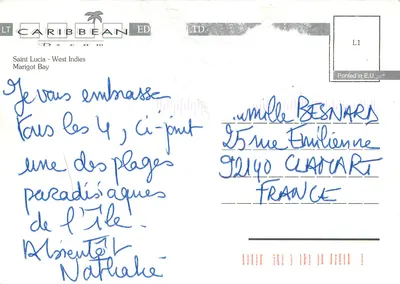 LT
CARIBBEAN
Dream
ED
TD.
Saint Lucia - West Indies
Marigot Bay
L1
Printed in E.U.
Je vous embrasse
tous les 4, ci-joint
une des plages
paradisiaques
de l'Île.
A bientôt
Nathalie
Famille BESNARD
25 rue Emilienne
92140 CLAMART
FRANCE